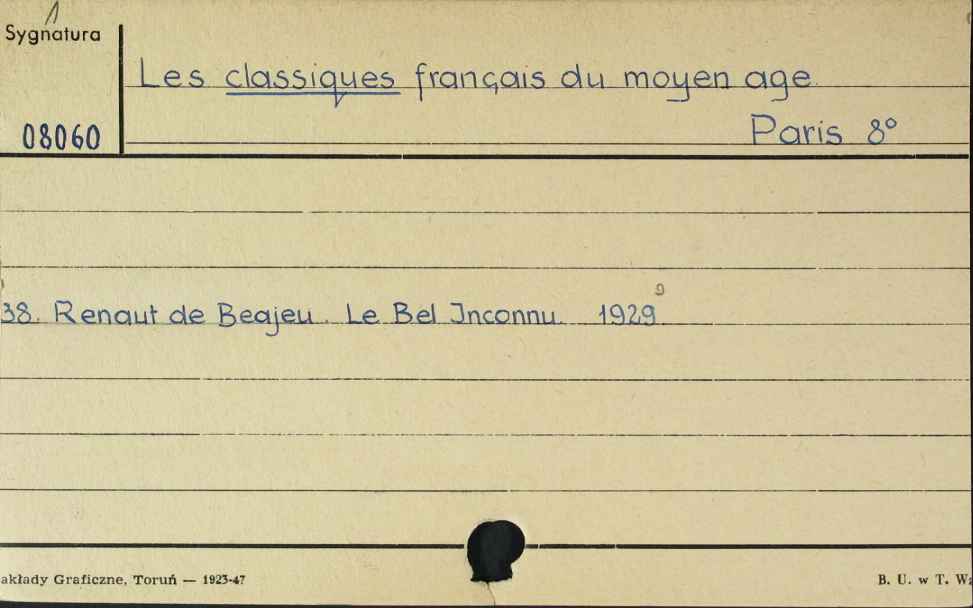 Sygnatura
Les classiques français du moyen age
08060
Paris 8°
38. Renaut de Beajeu. Le Bel Inconnu. 1929
akłady Graficzne, Toruń — 1923-47
B. U. w T. W